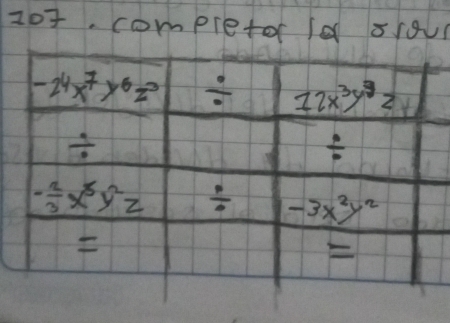 107. completa la
-24x⁷y⁶z³ ÷ 12x³y³z
÷ ÷
-2/3x⁵y²z ÷ -3x²y²
= =